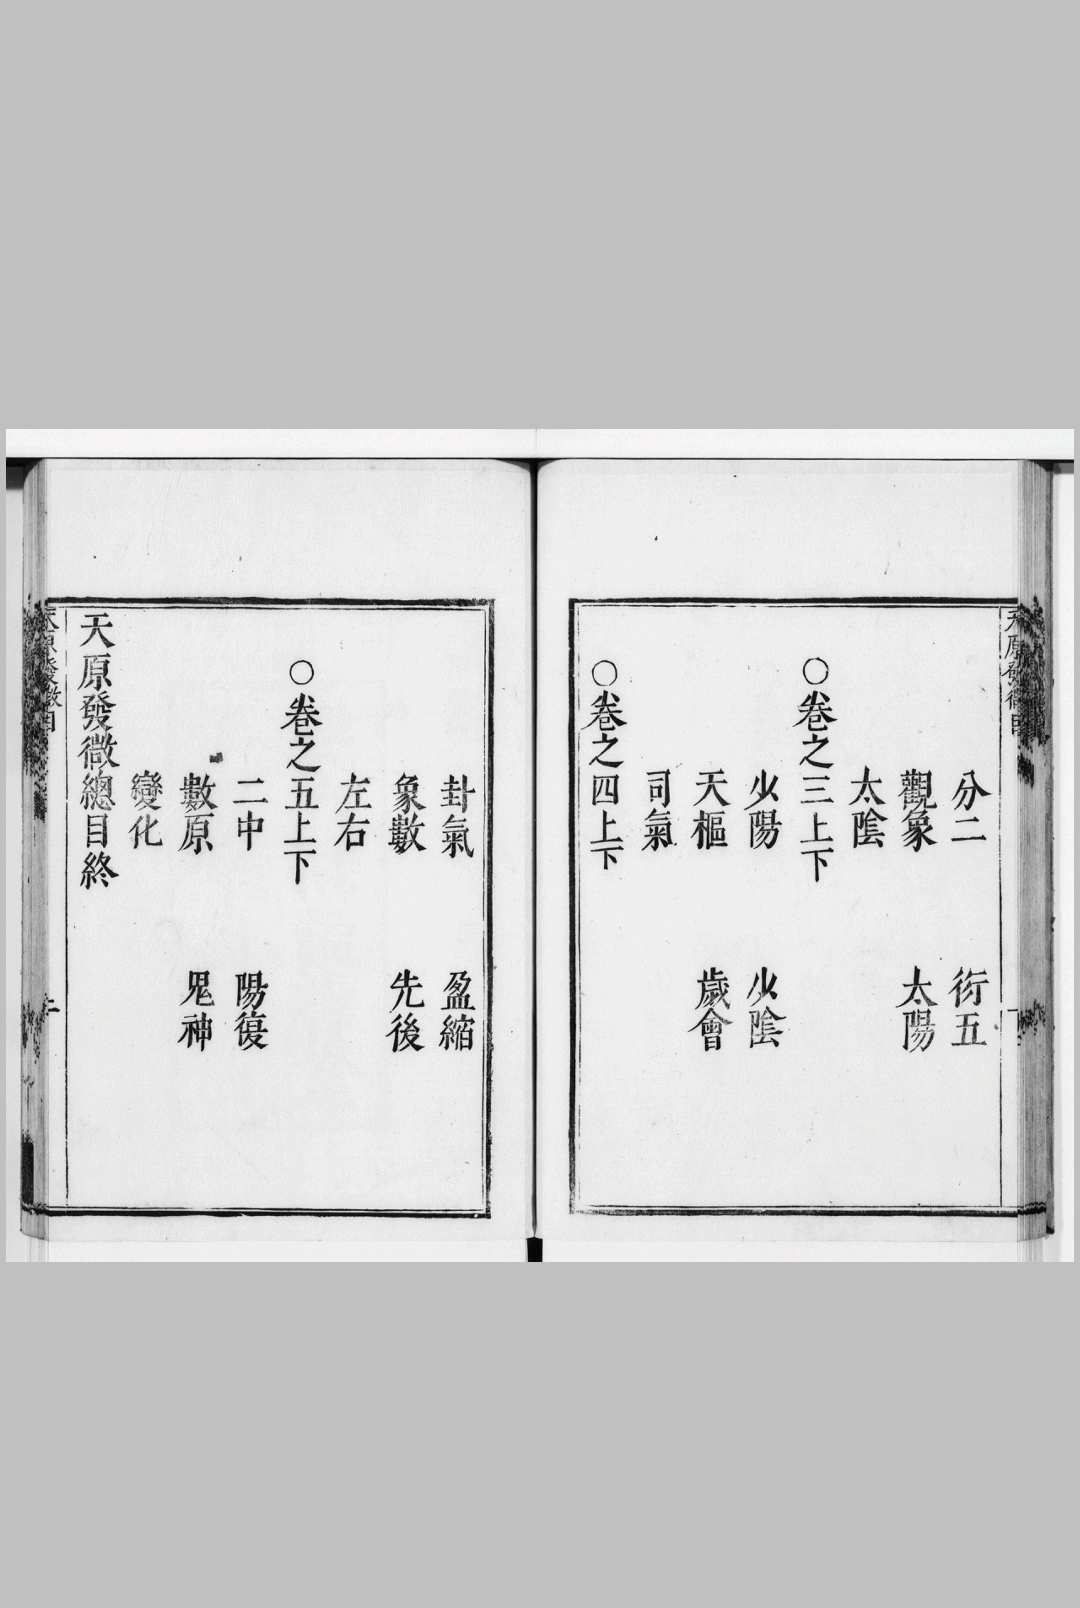 天原發微目
分二　衍五
觀象　太陽
太陰
○卷之三上下
少陽　少陰
天樞　歲會
司氣
○卷之四上下
卦氣　盈縮
象數　先後
左右
○卷之五上下
二中　陽復
數原　鬼神
變化
天原發微總目終